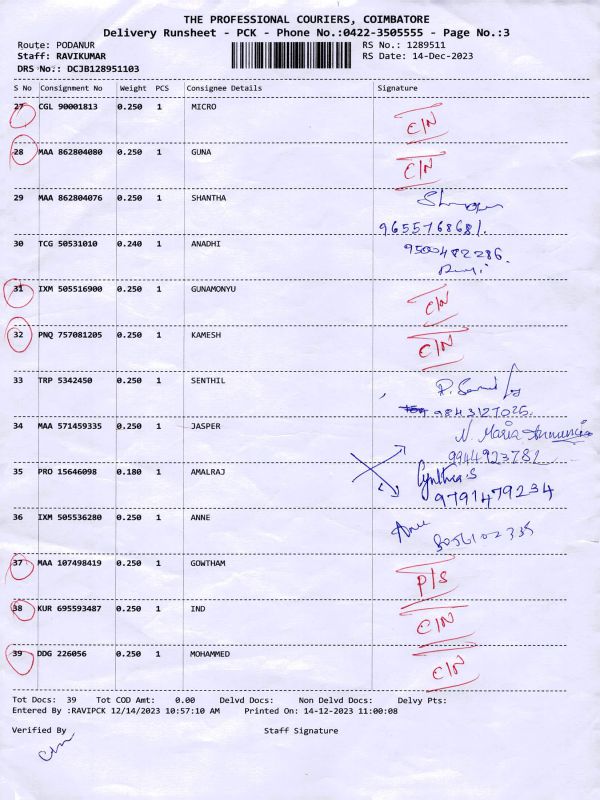 THE PROFESSIONAL COURIERS, COIMBATORE
Delivery Runsheet - PCK - Phone No.:0422-3505555 - Page No.:3
Route: PODANUR RS No.: 1289511
Staff: RAVIKUMAR RS Date: 14-Dec-2023
DRS No.: DCJB128951103
S No Consignment No Weight PCS Consignee Details Signature
27 CGL 90001813 0.250 1 MICRO C/N
28 MAA 862804080 0.250 1 GUNA C/N
29 MAA 862804076 0.250 1 SHANTHA
9655768681.
30 TCG 50531010 0.240 1 ANADHI 9500482286.
31 IXM 505516900 0.250 1 GUNAMONYU C/N
32 PNQ 757081205 0.250 1 KAMESH C/N
33 TRP 5342450 0.250 1 SENTHIL
9843127026.
34 MAA 571459335 0.250 1 JASPER N. Maria Annuncia
9944923782
35 PRO 15646098 0.180 1 AMALRAJ Cynthia S
9791479234
36 IXM 505536280 0.250 1 ANNE Anne
8056102335
37 MAA 107498419 0.250 1 GOWTHAM P/S
38 KUR 695593487 0.250 1 IND C/N
39 DDG 226056 0.250 1 MOHAMMED C/N
Tot Docs: 39 Tot COD Amt: 0.00 Delvd Docs: Non Delvd Docs: Delvy Pts:
Entered By :RAVIPCK 12/14/2023 10:57:10 AM Printed On: 14-12-2023 11:00:08
Verified By Staff Signature